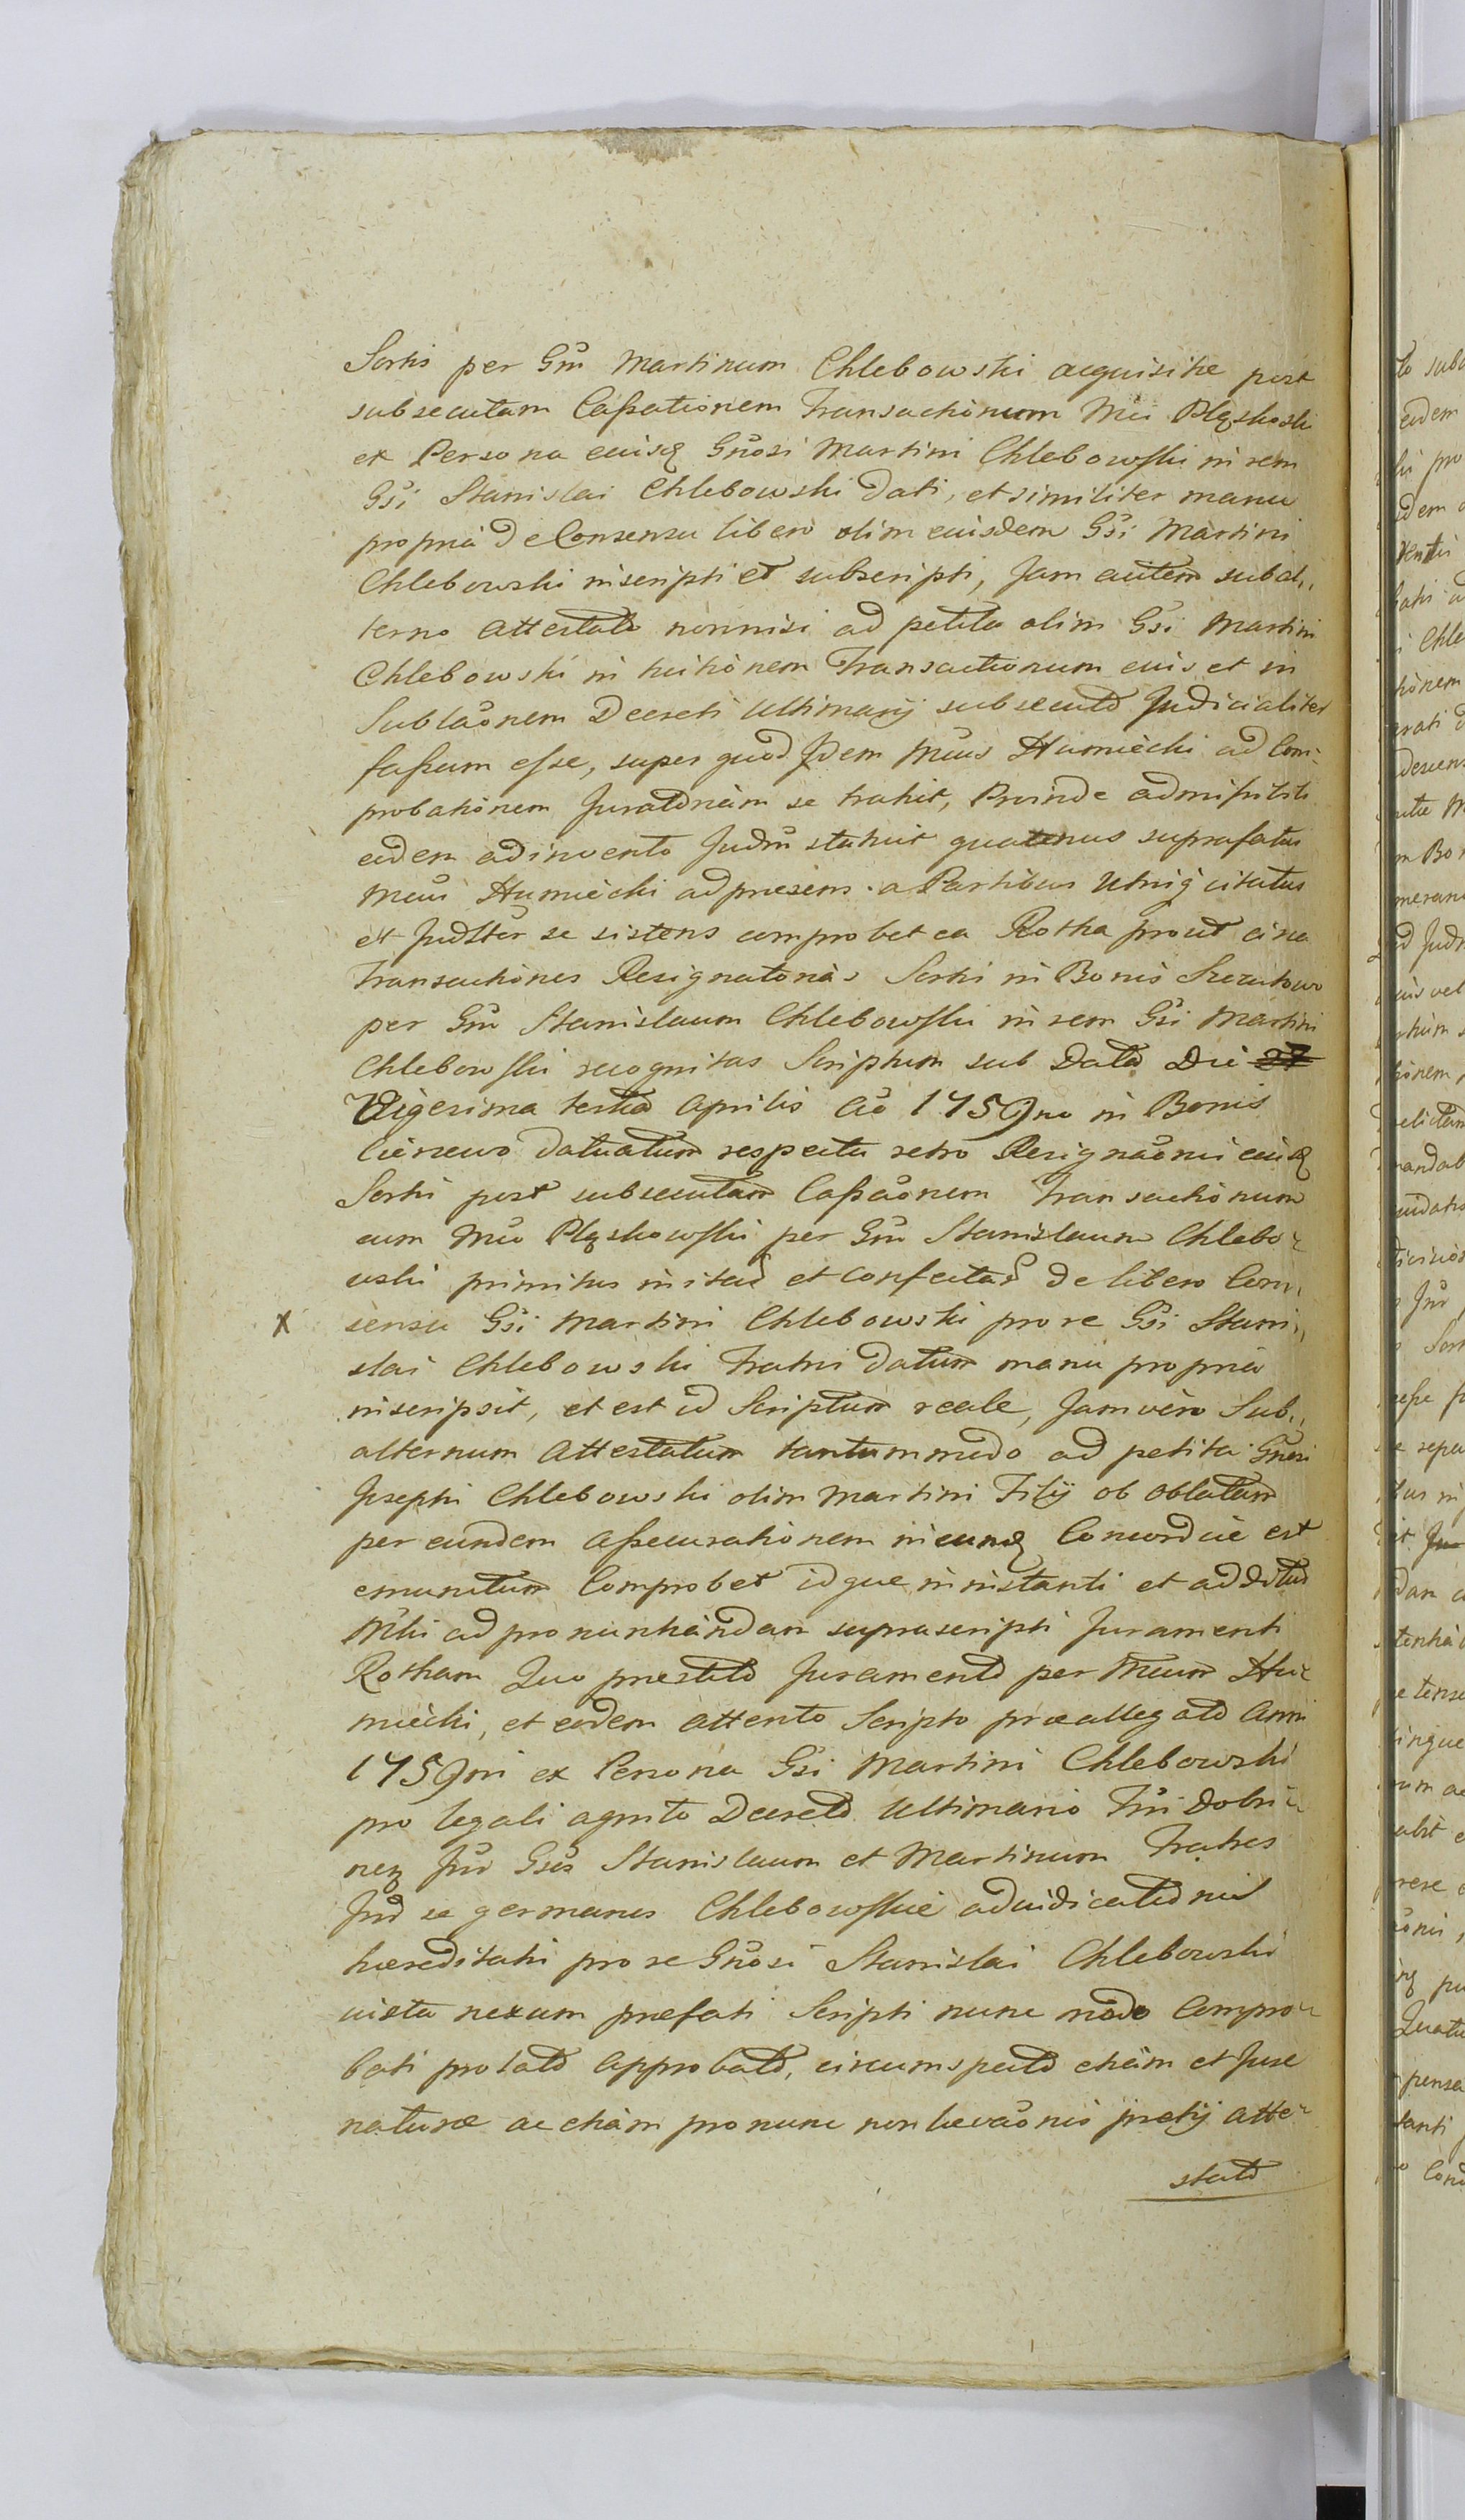 Sortis per Gm Martinum Chlebowski acquisitæ post
subsecutam Cassationem Transactionum Mci Pląskoski
et Persona euisq Gnosi Martini Chlebowski in rem
Gsi Stanislai Chlebowski dati, et similiter manu
propria de Consensu libero olim euisdem Gsi Martini
Chlebowski inscripti et subscripti, Jam autem subal,,
terno attestato nonnisi ad petita olim Gsi Martini
Chlebowski in tuitionem Transactionum euis et in
Sublaonem Decreti Ultimarij subsecuto Judicialiter
fassum esse, super quod Jdem Mcus Humiecki ad Com-
probationem Juratoriam se trahit, Proinde admissibili
eidem adinvento Judm statuit quatenus suprafatus
Mcus Humiecki ad præsens a Partibus Utriq citatus
et Judltr se sistens comprobet ea Rotha prout circa
Transactiones Resignatorias Sortis in Bonis
per Gm Stanislaum Chlebowski in rem Gsi Martini
Chlebowski recognitas Scriptum sub Data Die 27
Vigesima tertia Aprilis Ao 1759no in Bonis
datuatum respectu retro Resignaonis euisq
Sortis post subsecutam Cassaonem Transactionum
cum Mco Pląskowski per Gm Stanislaum Chlebo-
wski primitus initas et confectas de libero Con,,
x sensu Gsi Martini Chlebowski pro re Gsi Stani,,
slai Chlebowski Fratri datum manu propria
inscripsit, et est id Scriptum reale, Jam vero Sub,,
alternum Attestatum tantummodo ad petita Gnosi
Josephi Chlebowski olim Martini Filij ob oblatam
per eundem assecurationem ineundæ Concordiæ est
emunitum Comprobet idque in instanti et addit
Mtli ad pronuntiandam suprascripti Juramenti
Rotham Quo præstito Juramento per Mcum Hu-
miecki, et eodem attento Scripto præallegato Anni
1759ni ex Persona Gsi Martini Chlebowski
pro legali agnito Decreto Ultimario Tri Dobri-
nen Jnr Gsos Stanislaum et Martinum Fratres
Jnr se germanos Chlebowskie adiudicatio nis
hæreditatis pro re Gnosi Stanislai Chlebowski
iuxta nexum præfati Scripti nunc modo Compro-
bati prolato approbato, circumspecto etiam et Jure
naturæ ac etiam pro nunc non levaonis pretij atte-
stato